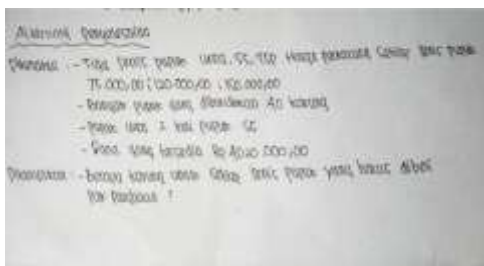 Alternatif Penyelesaian
Diketahui : - Tiga jenis pupuk urea, SS, TSP Harga perkarung setiap jenis pupuk
75.000,00 ; 120.000,00 ; 150.000,00
- Banyak pupuk yang dibutuhkan 40 karung
- Pupuk urea 2 kali pupuk SS
- Dana yang tersedia Rp 4.020.000,00
Ditanyakan : - Berapa karung untuk setiap jenis pupuk yang harus dibeli
Pak Panjaitan ?